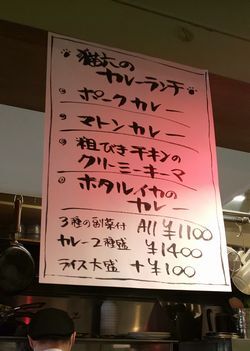 猫六の
カレーランチ
ポークカレー
マトンカレー
粗びきチキンの
クリーミーキーマ
ホタルイカの
カレー
3種の副菜付 All ¥1100
カレー2種盛 ¥1400
ライス大盛 +¥100